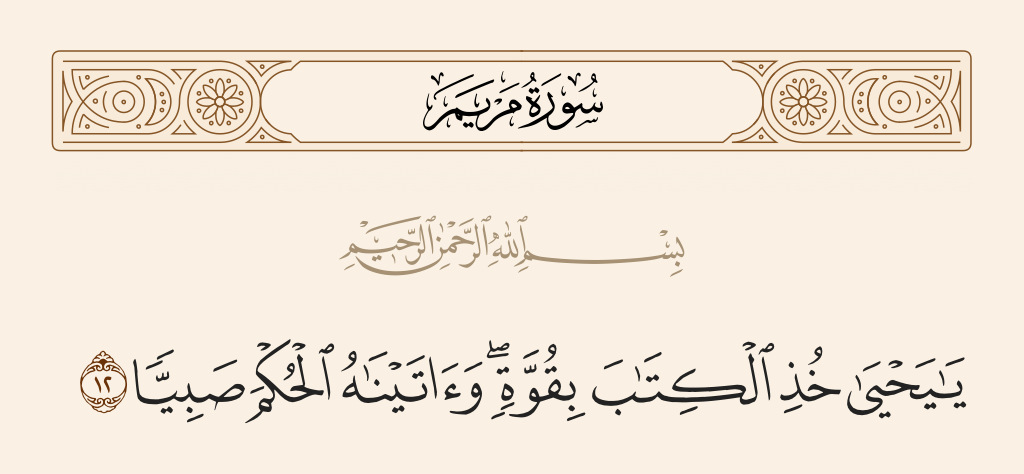 سُورَةُ مَرْيَمَ
بِسْمِ ٱللَّهِ ٱلرَّحْمَٰنِ ٱلرَّحِيمِ
يَٰيَحْيَىٰ خُذِ ٱلْكِتَٰبَ بِقُوَّةٖۖ وَءَاتَيْنَٰهُ ٱلْحُكْمَ صَبِيّٗا ١٢